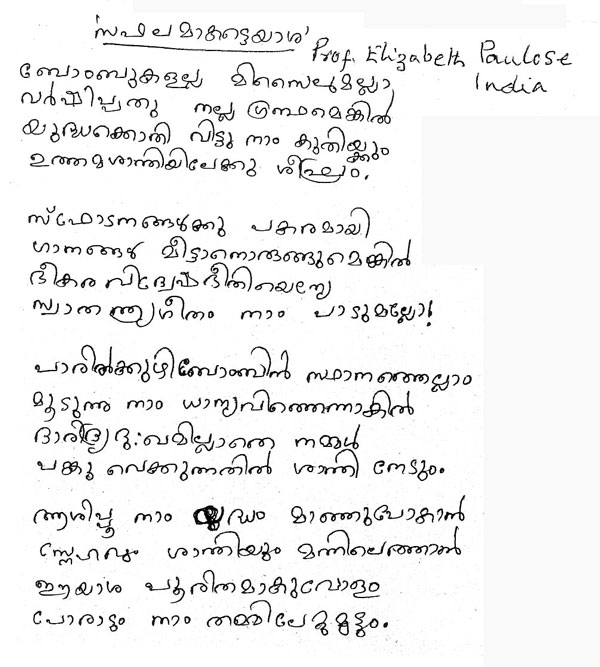 'സഫലമാകട്ടെയാശ'
Prof. Elizabeth Paulose
India
ബോംബുകളല്ല മിസൈലുമല്ലാ
വർഷിപ്പതു നല്ല ഗ്രന്ഥമെങ്കിൽ
യുദ്ധക്കൊതി വിട്ടു നാം കുതിയ്ക്കും
ഉത്തമശാന്തിയിലേക്കു ശീഘ്രം.
സ്ഫോടനങ്ങൾക്കു പകരമായി
ഗാനങ്ങൾ മീട്ടാനൊരുങ്ങുമെങ്കിൽ
ഭീകര വിദ്വേഷഭീതിയെന്യേ
സ്വാതന്ത്ര്യഗീതം നാം പാടുമല്ലോ!
പാരിൽക്കുഴിബോംബിൻ സ്ഥാനത്തെല്ലാം
മൂടുന്നു നാം ധാന്യവിത്തെന്നാകിൽ
ദാരിദ്ര്യദുഃഖമില്ലാതെ നമ്മൾ
പങ്കു വെക്കുന്നതിൽ ശാന്തി നേടും.
ആശിപ്പൂ നാം യുദ്ധം മാഞ്ഞുപോകാൻ
സ്നേഹവും ശാന്തിയും മന്നിലെത്താൻ
ഈയാശ പൂരിതമാകുവോളം
പോരാടും നാം തമ്മിലേറ്റുമുട്ടും.